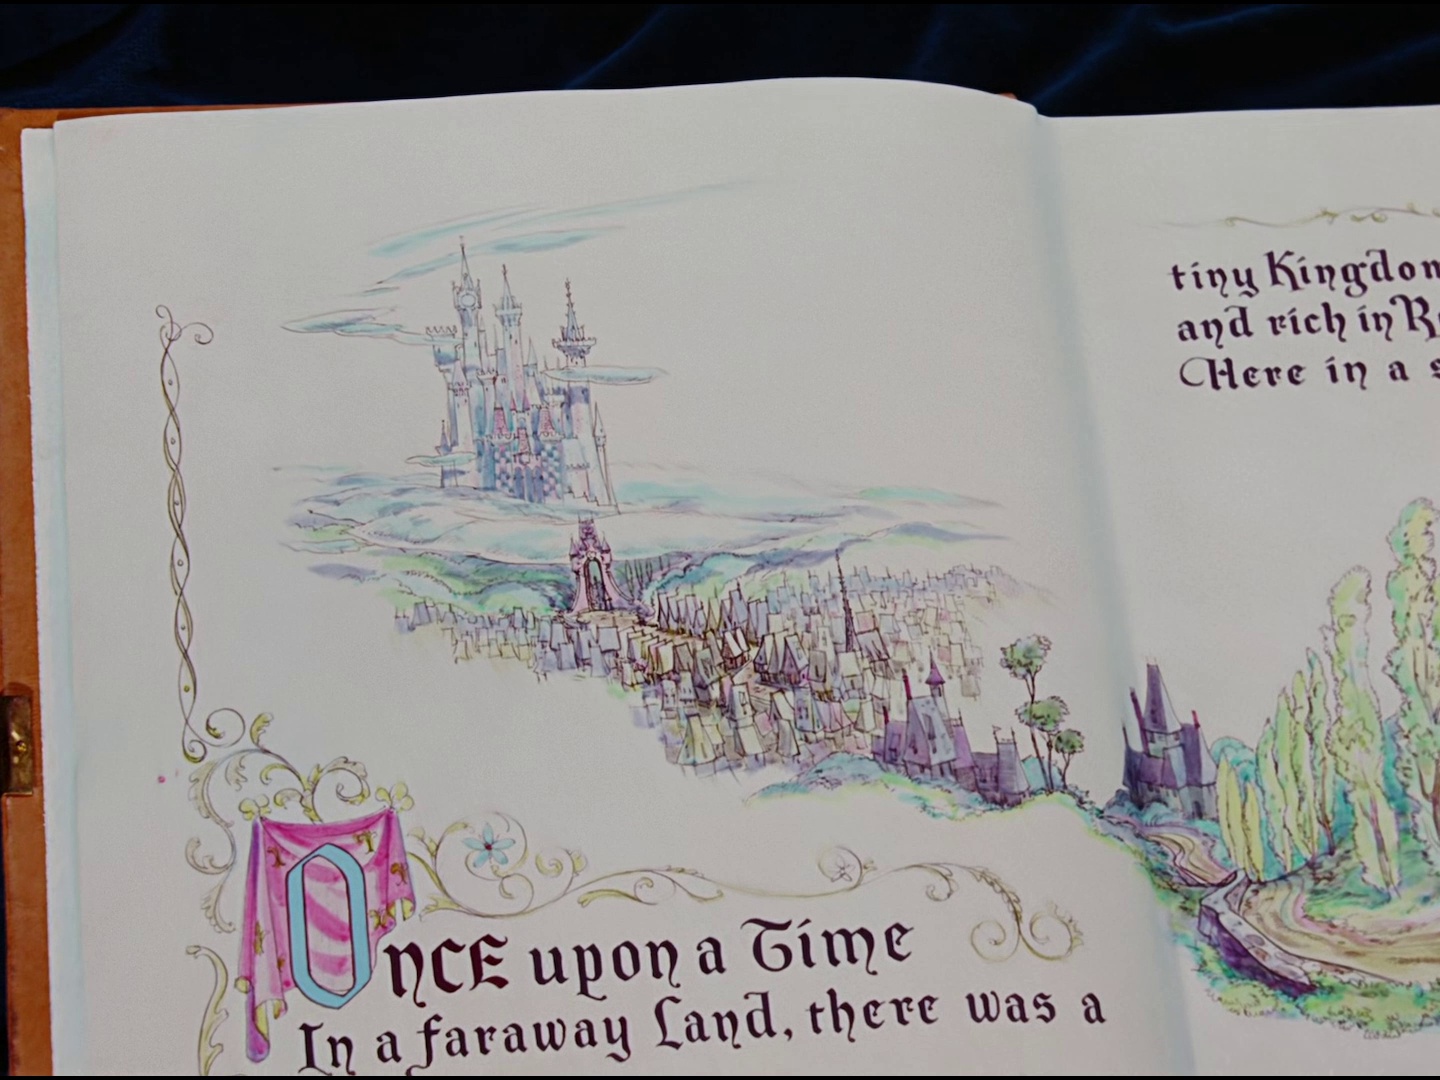 ONCE upon a Time
In a faraway Land, there was a
tiny Kingdom
and rich in
Here in a